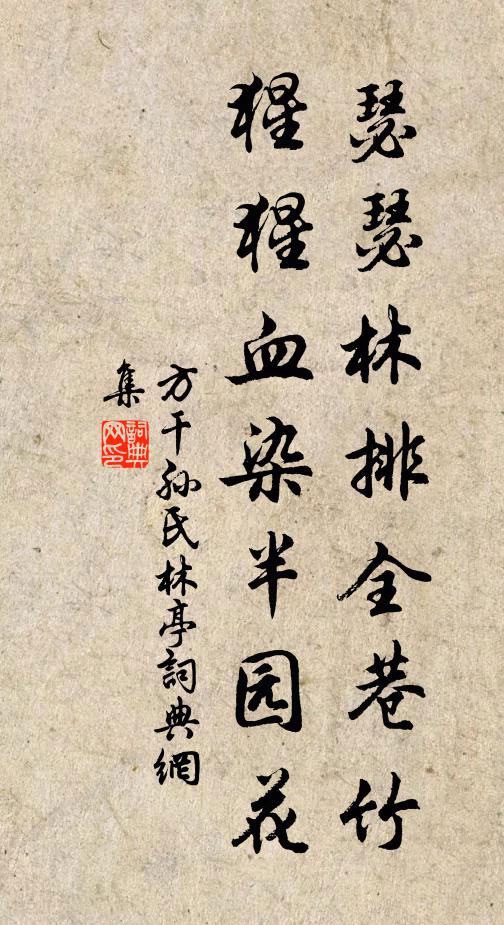 瑟瑟林排全巷竹
猩猩血染半园花
方干孙氏林亭詞典網
集
詞典网印